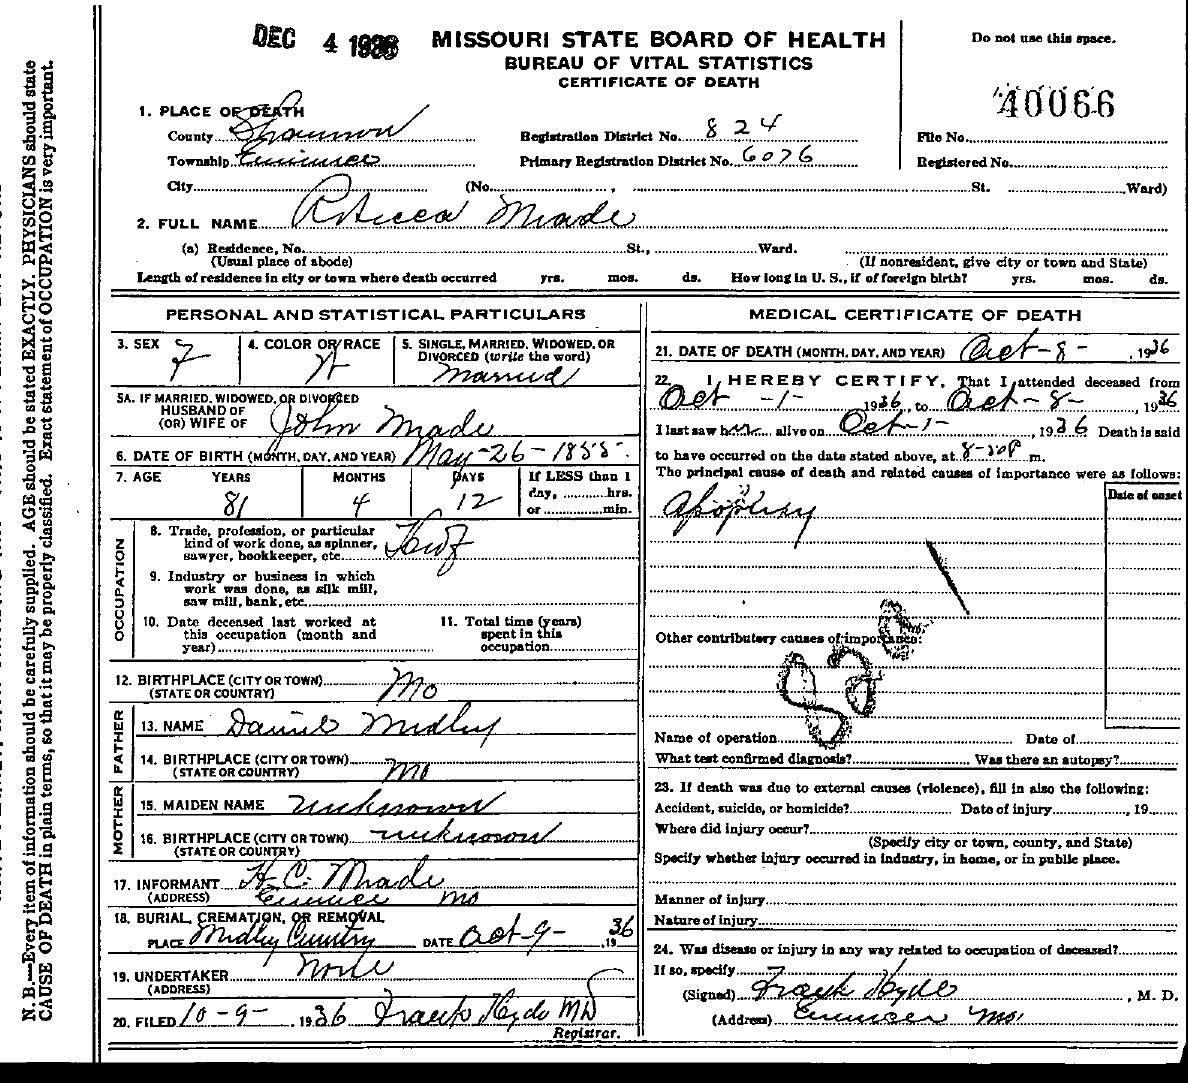 DEC 4 1936
MISSOURI STATE BOARD OF HEALTH
BUREAU OF VITAL STATISTICS
CERTIFICATE OF DEATH
Do not use this space.
40066
1. PLACE OF DEATH
County Shannon
Township Eminence
City
(No. , St. Ward)
Registration District No. 824
Primary Registration District No. 6076
File No.
Registered No.
2. FULL NAME Rebecca Meade
(a) Residence, No. St., Ward.
(Usual place of abode)
(If nonresident, give city or town and State)
Length of residence in city or town where death occurred yrs. mos. ds. How long in U. S., if of foreign birth? yrs. mos. ds.
PERSONAL AND STATISTICAL PARTICULARS
3. SEX F
4. COLOR OR RACE W
5. SINGLE, MARRIED, WIDOWED, OR
DIVORCED (write the word)
Married
5A. IF MARRIED, WIDOWED, OR DIVORCED
HUSBAND OF
(OR) WIFE OF John Meade
6. DATE OF BIRTH (MONTH, DAY, AND YEAR) May-26-1855
7. AGE YEARS MONTHS DAYS If LESS than 1
day, hrs.
or min.
81 4 12
OCCUPATION
8. Trade, profession, or particular
kind of work done, as spinner,
sawyer, bookkeeper, etc.
9. Industry or business in which
work was done, as silk mill,
saw mill, bank, etc.
10. Date deceased last worked at
this occupation (month and
year)
11. Total time (years)
spent in this
occupation
12. BIRTHPLACE (CITY OR TOWN) Mo
(STATE OR COUNTRY)
FATHER
13. NAME Daniel Medley
14. BIRTHPLACE (CITY OR TOWN) Mo
(STATE OR COUNTRY)
MOTHER
15. MAIDEN NAME unknown
16. BIRTHPLACE (CITY OR TOWN) unknown
(STATE OR COUNTRY)
17. INFORMANT H. C. Meade
(ADDRESS) Eminence Mo
18. BURIAL, CREMATION, OR REMOVAL
PLACE Medley DATE Oct-9- 1936
19. UNDERTAKER None
(ADDRESS)
20. FILED 10-9-, 1936 Frank Hyde MD
Registrar.
MEDICAL CERTIFICATE OF DEATH
21. DATE OF DEATH (MONTH, DAY, AND YEAR) Oct-8-, 1936
22. I HEREBY CERTIFY, That I attended deceased from
Oct -1-, 1936, to Oct-8-, 1936
I last saw her alive on Oct-1-, 1936 Death is said
to have occurred on the date stated above, at m.
The principal cause of death and related causes of importance were as follows:
Date of onset
Apoplexy
Other contributory causes of importance:
82a
Name of operation Date of
What test confirmed diagnosis? Was there an autopsy?
23. If death was due to external causes (violence), fill in also the following:
Accident, suicide, or homicide? Date of injury , 19
Where did injury occur?
(Specify city or town, county, and State)
Specify whether injury occurred in industry, in home, or in public place.
Manner of injury
Nature of injury
24. Was disease or injury in any way related to occupation of deceased?
If so, specify
(Signed) Frank Hyde, M. D.
(Address) Eminence Mo.
N. B.—Every item of information should be carefully supplied. AGE should be stated EXACTLY. PHYSICIANS should state
CAUSE OF DEATH in plain terms, so that it may be properly classified. Exact statement of OCCUPATION is very important.